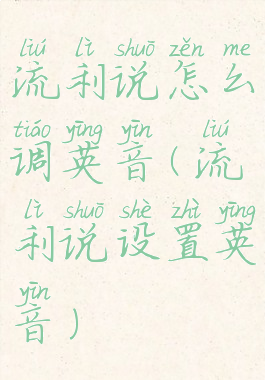 liú lì shuō zěn me
流利说怎么
tiáo yīng yīn liú
调英音(流
lì shuō shè zhì yīng
利说设置英
yīn
音)